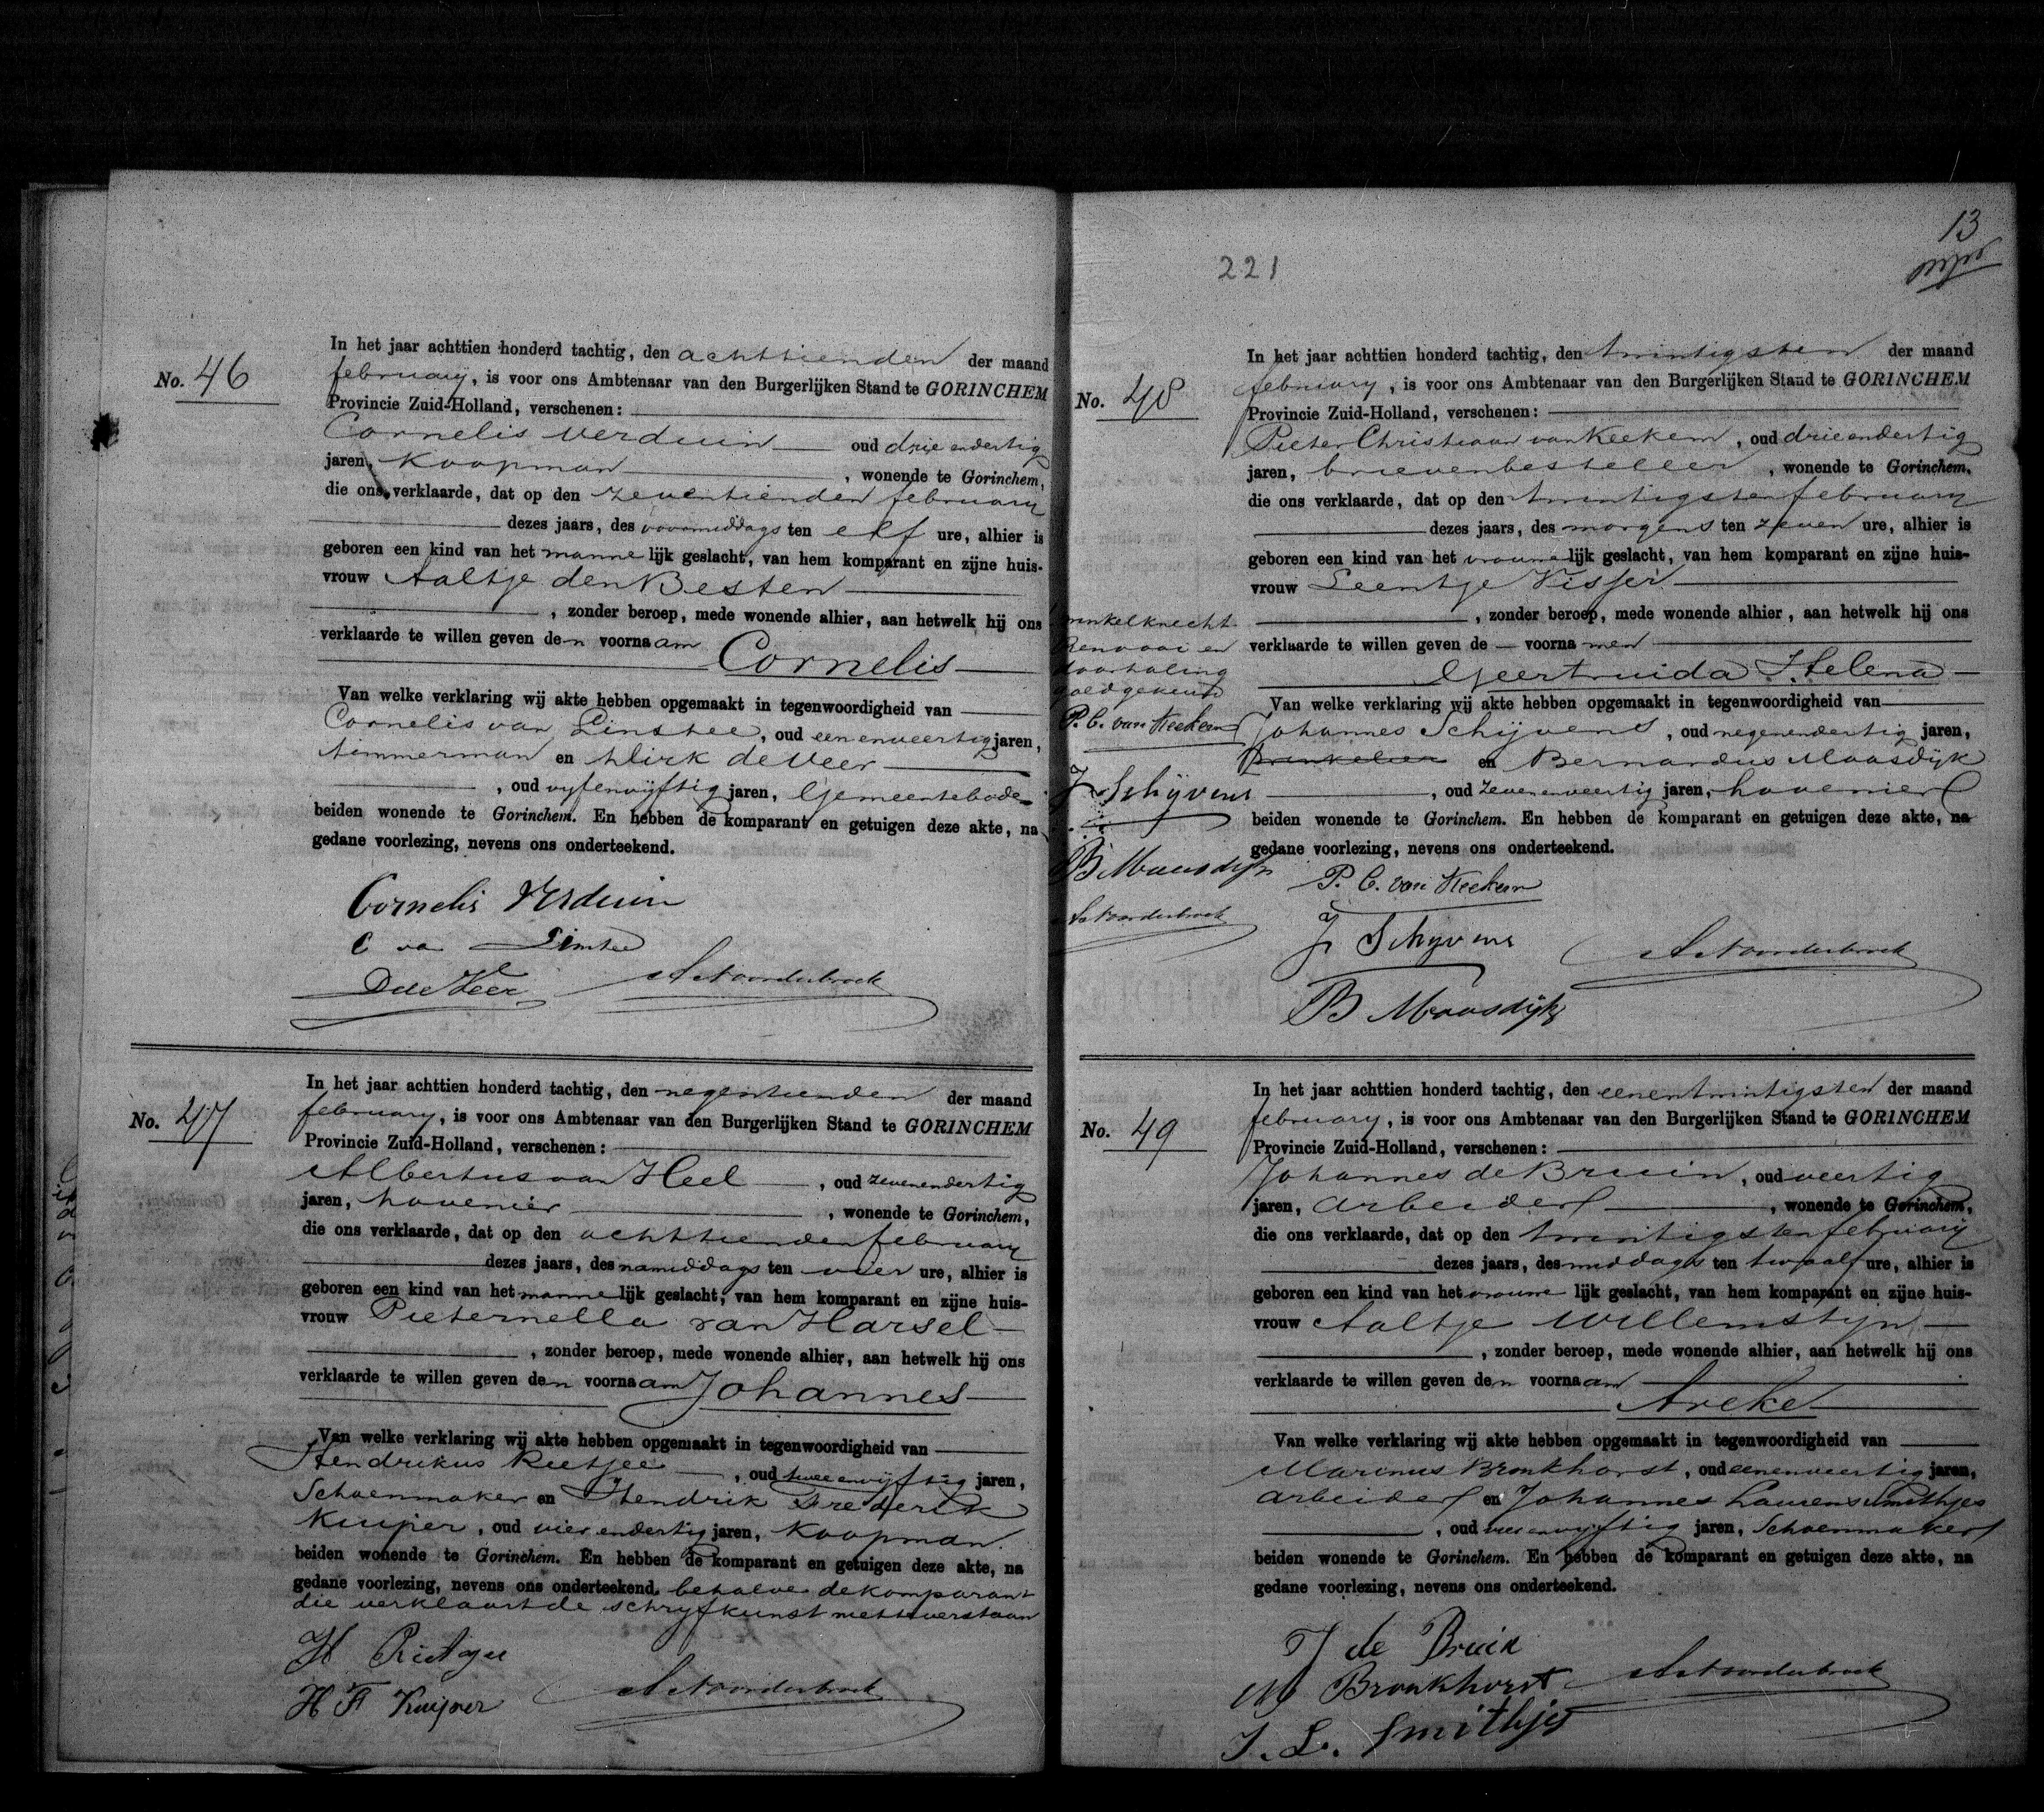 No. 46
In het jaar achttien honderd tachtig, den achttienden der maand
february, is voor ons Ambtenaar van den Burgerlijken Stand te GORINCHEM
Provincie Zuid-Holland, verschenen:
Cornelis Verduin oud drie endertig
jaren, Koopman, wonende te Gorinchem,
die ons verklaarde, dat op den zeventienden february
dezes jaars, des voormiddags ten elf ure, alhier is
geboren een kind van het mannelijk geslacht, van hem komparant en zijne huis-
vrouw Aaltje den Besten
, zonder beroep, mede wonende alhier, aan hetwelk hij ons
verklaarde te willen geven den voornaam
Cornelis
Van welke verklaring wij akte hebben opgemaakt in tegenwoordigheid van
Cornelis van Linstee, oud eenenveertig jaren,
timmerman en Dirk de Veer
, oud vyfenvyftig jaren, Gemeentebode
beiden wonende te Gorinchem. En hebben de komparant en getuigen deze akte, na
gedane voorlezing, nevens ons onderteekend.
Cornelis Verduin
C van Linstee
D de Veer A Noorderbroek
No. 47
In het jaar achttien honderd tachtig, den negentienden der maand
february, is voor ons Ambtenaar van den Burgerlijken Stand te GORINCHEM
Provincie Zuid-Holland, verschenen:
Albertus van Heel, oud zevenendertig
jaren, hovenier, wonende te Gorinchem,
die ons verklaarde, dat op den achttienden february
dezes jaars, des namiddags ten vier ure, alhier is
geboren een kind van het mannelijk geslacht, van hem komparant en zijne huis-
vrouw Pieternella van Harsel
, zonder beroep, mede wonende alhier, aan hetwelk hij ons
verklaarde te willen geven den voornaam Johannes
Van welke verklaring wij akte hebben opgemaakt in tegenwoordigheid van
Hendrikus Rietjee, oud twee envijftig jaren,
Schoenmaker en Hendrik Frederik
Kuijper, oud vier endertig jaren, Koopman.
beiden wonende te Gorinchem. En hebben de komparant en getuigen deze akte, na
gedane voorlezing, nevens ons onderteekend. behalve de komparant
die verklaart de schryfkunst niet te verstaan
H
H F Kuijper A Noorderbroek
13
221
No. 48
In het jaar achttien honderd tachtig, den twintigsten der maand
february, is voor ons Ambtenaar van den Burgerlijken Stand te GORINCHEM
Provincie Zuid-Holland, verschenen:
Pieter Christiaan van Keekem, oud drieendertig
jaren, brievenbesteller, wonende te Gorinchem,
die ons verklaarde, dat op den twintigsten february
dezes jaars, des morgens ten zeven ure, alhier is
geboren een kind van het vrouwelijk geslacht, van hem komparant en zijne huis-
vrouw Leentje Visser
, zonder beroep, mede wonende alhier, aan hetwelk hij ons
verklaarde te willen geven de voornamen
Geertruida Helena
Van welke verklaring wij akte hebben opgemaakt in tegenwoordigheid van
Johannes Schijvens, oud negenendertig jaren,
Winkelier en Bernardus Maasdijk
, oud zevenenveertig jaren, hovenier
beiden wonende te Gorinchem. En hebben de komparant en getuigen deze akte, na
gedane voorlezing, nevens ons onderteekend.
P. C. van Keekem
J Schyvens
A Noorderbroek
B Maasdijk
winkelknecht
Renvooi en
doorhaling
goedgekeurd
P. C. van Keekem
J Schyvens
B Maasdijk
A Noorderbroek
No. 49
In het jaar achttien honderd tachtig, den eenentwintigsten der maand
february, is voor ons Ambtenaar van den Burgerlijken Stand te GORINCHEM
Provincie Zuid-Holland, verschenen:
Johannes de Bruin, oud veertig
jaren, arbeider, wonende te Gorinchem,
die ons verklaarde, dat op den twintigsten february
dezes jaars, des middags ten twaalf ure, alhier is
geboren een kind van het vrouwelijk geslacht, van hem komparant en zijne huis-
vrouw Aaltje Willemstyn
, zonder beroep, mede wonende alhier, aan hetwelk hij ons
verklaarde te willen geven den voornaam
Areke
Van welke verklaring wij akte hebben opgemaakt in tegenwoordigheid van
Marinus Bronkhorst, oud eenenveertig jaren,
arbeider en Johannes Laurens Smithjes
, oud vier envyftig jaren, Schoenmaker
beiden wonende te Gorinchem. En hebben de komparant en getuigen deze akte, na
gedane voorlezing, nevens ons onderteekend.
J de Bruin
M Bronkhorst A Noorderbroek
J. L. Smithjes